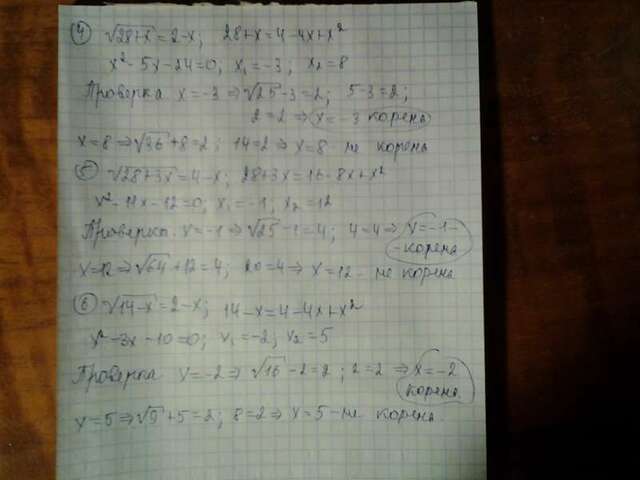 ④ √28+x = 2-x; 28+x = 4-4x+x²
x²-5x-24=0; x₁=-3; x₂=8
Проверка x=-3 ⇒ √25-3=2; 5-3=2;
2=2 ⇒ x=-3 корена
x=8 ⇒ √36+8=2; 14=2 ⇒ x=8 не корена
⑤ √28+3x = 4-x; 28+3x = 16-8x+x²
x²-11x-12=0; x₁=-1; x₂=12
Проверка. x=-1 ⇒ √25-1=4; 4=4 ⇒ x=-1-
-корена
x=12 ⇒ √64+12=4; 20=4 ⇒ x=12- не корена
⑥ √14-x = 2-x; 14-x = 4-4x+x²
x²-3x-10=0; x₁=-2; x₂=5
Проверка x=-2 ⇒ √16-2=2; 2=2 ⇒ x=-2
корена
x=5 ⇒ √9+5=2; 8=2 ⇒ x=5-не корена